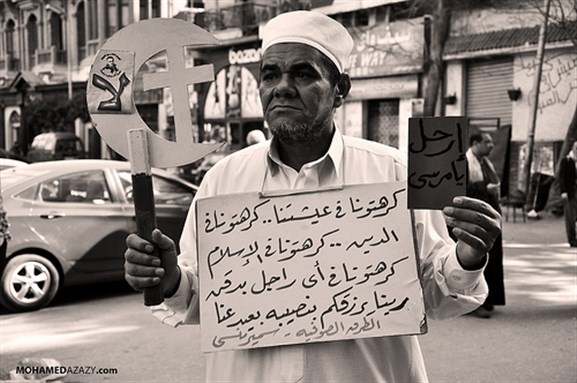 لا
ارحل
يا مرسي
كرهتونا في عيشتنا.. كرهتونا في
الدين.. كرهتونا في الإسلام
كرهتونا في أي راجل بدقن
ربنا يرزقكم بنصيبه بعيد عنا
الطرق الصوفية - سمير منسي
WAY
MOHAMEDAZAZY.com